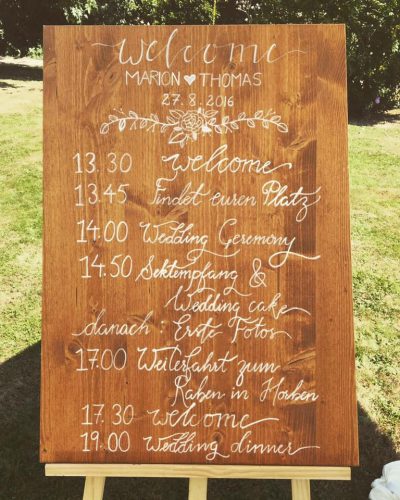 welcome
MARION ♥ THOMAS
27.8.2016
13.30 welcome
13.45 Findet euren Platz
14.00 Wedding Ceremony
14.50 Sektempfang &
Wedding cake
danach : Erste Fotos
17.00 Weiterfahrt zum
Raben in Horben
17.30 welcome
19.00 Wedding dinner